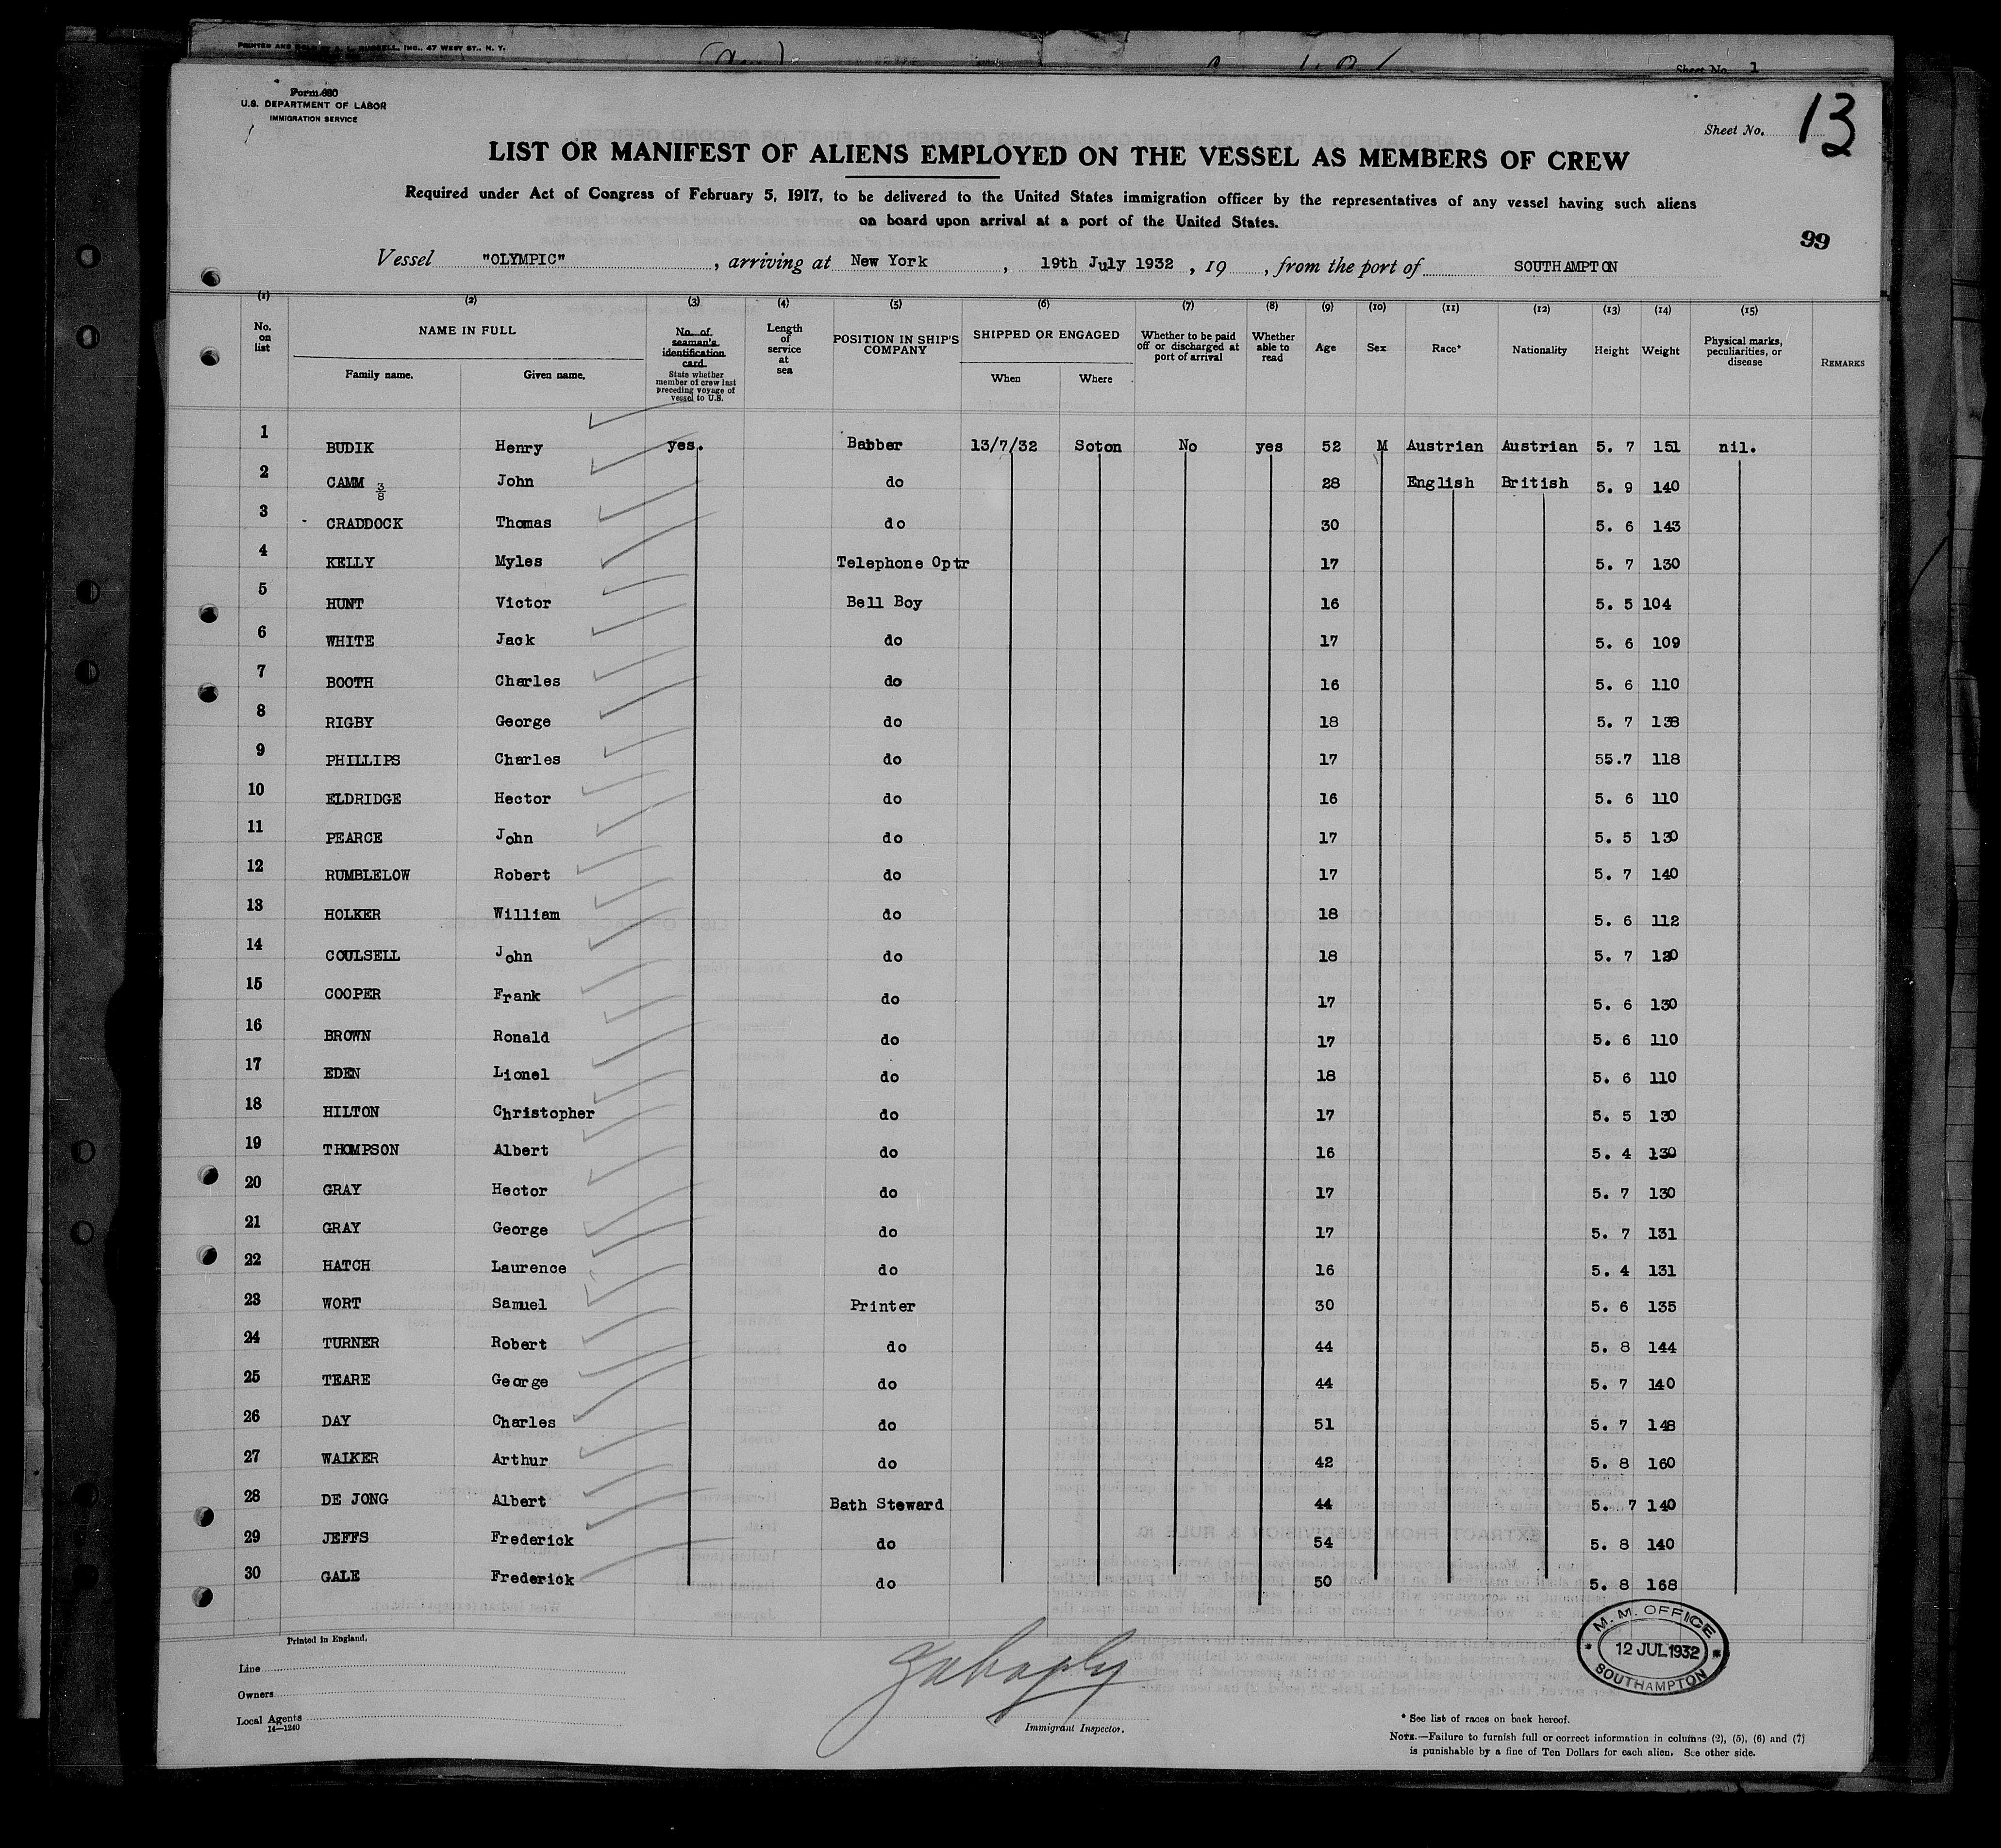 PRINTED AND SOLD BY A. L. RUSSELL, INC., 47 WEST ST., N. Y.
Sheet No. 1
Form 680
U.S. DEPARTMENT OF LABOR
IMMIGRATION SERVICE
Sheet No. 13
LIST OR MANIFEST OF ALIENS EMPLOYED ON THE VESSEL AS MEMBERS OF CREW
Required under Act of Congress of February 5, 1917, to be delivered to the United States immigration officer by the representatives of any vessel having such aliens
on board upon arrival at a port of the United States.
99
Vessel "OLYMPIC", arriving at New York, 19th July 1932, 19 , from the port of SOUTHAMPTON
(1) (2) (3) (4) (5) (6) (7) (8) (9) (10) (11) (12) (13) (14) (15)
No. on list NAME IN FULL Family name. Given name. No. of seaman's identification card. State whether member of crew last preceding voyage of vessel to U.S. Length of service at sea POSITION IN SHIP'S COMPANY SHIPPED OR ENGAGED When Where Whether to be paid off or discharged at port of arrival Whether able to read Age Sex Race* Nationality Height Weight Physical marks, peculiarities, or disease REMARKS
1 BUDIK Henry yes. Babber 13/7/32 Soton No yes 52 M Austrian Austrian 5. 7 151 nil.
2 CAMM 3/8 John do 28 English British 5. 9 140
3 CRADDOCK Thomas do 30 5. 6 143
4 KELLY Myles Telephone Optr 17 5. 7 130
5 HUNT Victor Bell Boy 16 5. 5 104
6 WHITE Jack do 17 5. 6 109
7 BOOTH Charles do 16 5. 6 110
8 RIGBY George do 18 5. 7 138
9 PHILLIPS Charles do 17 55.7 118
10 ELDRIDGE Hector do 16 5. 6 110
11 PEARCE John do 17 5. 5 130
12 RUMBLELOW Robert do 17 5. 7 140
13 HOLKER William do 18 5. 6 112
14 COULSELL John do 18 5. 7
15 COOPER Frank do 17 5. 6 130
16 BROWN Ronald do 17 5. 6 110
17 EDEN Lionel do 18 5. 6 110
18 HILTON Christopher do 17 5. 5 130
19 THOMPSON Albert do 16 5. 4 130
20 GRAY Hector do 17 5. 7 130
21 GRAY George do 17 5. 7 131
22 HATCH Laurence do 16 5. 4 131
23 WORT Samuel Printer 30 5. 6 135
24 TURNER Robert do 44 5. 8 144
25 TEARE George do 44 5. 7 140
26 DAY Charles do 51 5. 7 148
27 WALKER Arthur do 42 5. 8 160
28 DE JONG Albert Bath Steward 44 5. 7 140
29 JEFFS Frederick do 54 5. 8 140
30 GALE Frederick do 50 5. 8 168
Printed in England.
M. M. OFFICE
12 JUL 1932
SOUTHAMPTON
Line
Owners
Local Agents
14—1240
Immigrant Inspector.
* See list of races on back hereof.
NOTE.—Failure to furnish full or correct information in columns (2), (5), (6) and (7)
is punishable by a fine of Ten Dollars for each alien. See other side.